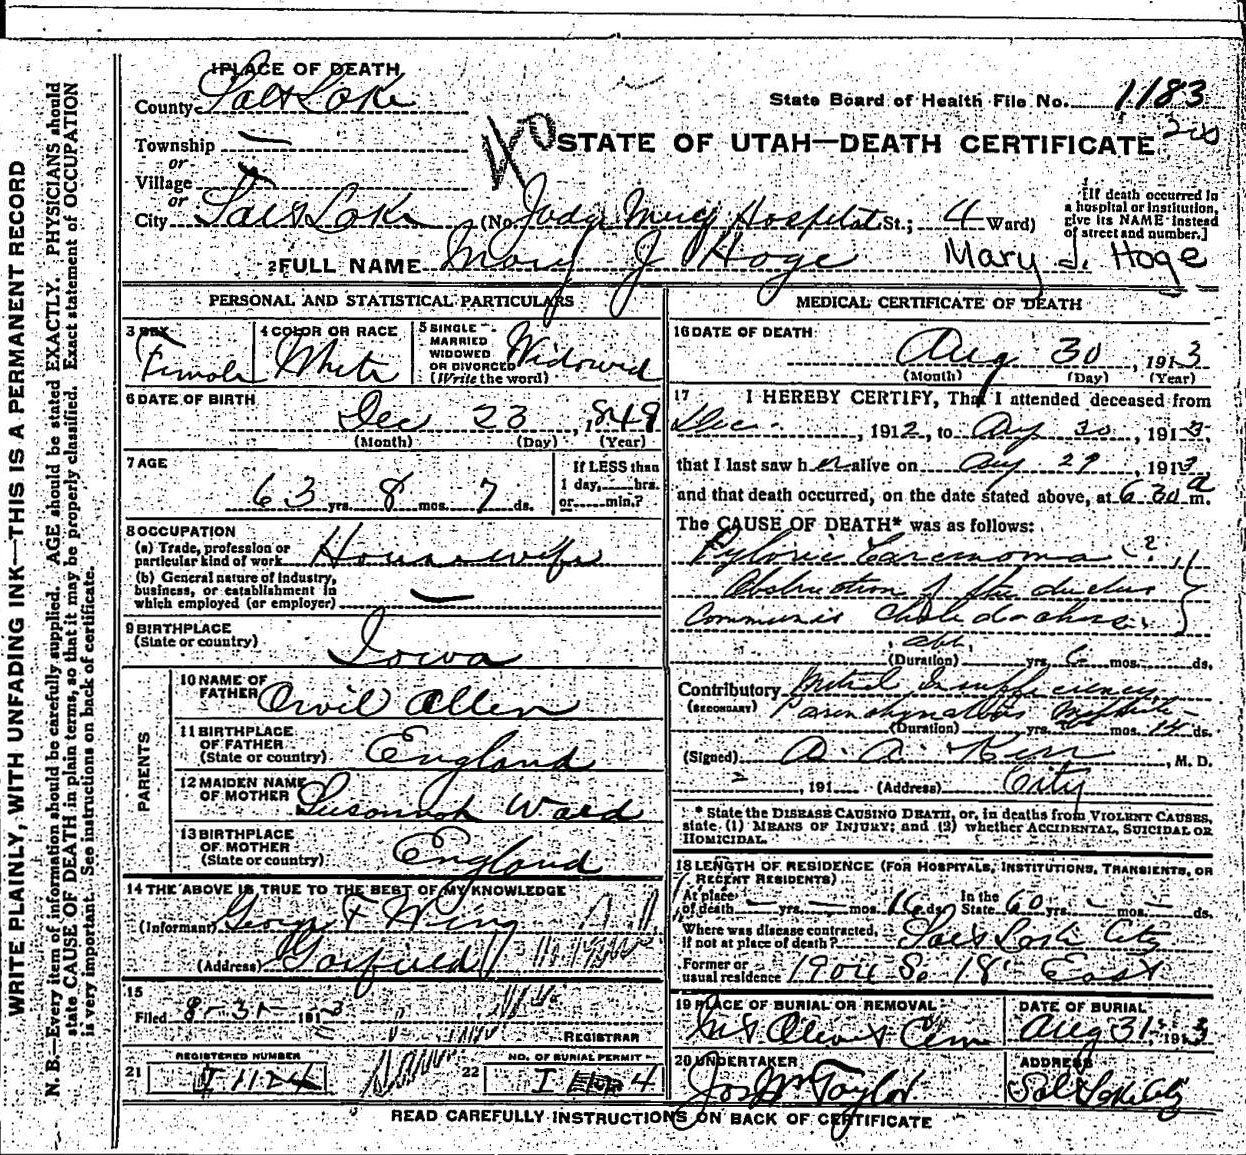 WRITE PLAINLY, WITH UNFADING INK—THIS IS A PERMANENT RECORD
N. B.—Every item of information should be carefully supplied. AGE should be stated EXACTLY. PHYSICIANS should
state CAUSE OF DEATH in plain terms, so that it may be properly classified. Exact statement of OCCUPATION
is very important. See instructions on back of certificate.
1 PLACE OF DEATH
County Salt Lake
State Board of Health File No. 1183
Township —
or
Village
or
STATE OF UTAH—DEATH CERTIFICATE
City Salt Lake (No. Judge Mercy Hospital St.; 4 Ward)
[If death occurred in
a hospital or institution,
give its NAME instead
of street and number.]
2 FULL NAME Mary J Hoge Mary J. Hoge
PERSONAL AND STATISTICAL PARTICULARS
3 SEX
Female
4 COLOR OR RACE
White
5 SINGLE
MARRIED
WIDOWED
OR DIVORCED
(Write the word)
Widowed
6 DATE OF BIRTH
Dec 23, 1849
(Month) (Day) (Year)
7 AGE
63 yrs. 8 mos. 7 ds.
If LESS than
1 day, hrs.
or min.?
8 OCCUPATION
(a) Trade, profession or
particular kind of work Housewife
(b) General nature of industry,
business, or establishment in
which employed (or employer) —
9 BIRTHPLACE
(State or country)
Iowa
PARENTS
10 NAME OF
FATHER
Orvil Allen
11 BIRTHPLACE
OF FATHER
(State or country)
England
12 MAIDEN NAME
OF MOTHER
Susannah Ward
13 BIRTHPLACE
OF MOTHER
(State or country)
England
14 THE ABOVE IS TRUE TO THE BEST OF MY KNOWLEDGE
(Informant) George F Wing
(Address) Garfield
15
Filed 8-31-1913
REGISTRAR
21 REGISTERED NUMBER
I 1124
22 NO. OF BURIAL PERMIT
I
MEDICAL CERTIFICATE OF DEATH
16 DATE OF DEATH
Aug 30, 1913
(Month) (Day) (Year)
17 I HEREBY CERTIFY, That I attended deceased from
Dec., 1912, to Aug 30, 1913,
that I last saw her alive on Aug 29, 1913,
and that death occurred, on the date stated above, at 6 30 a m.
The CAUSE OF DEATH* was as follows:
Pyloric Carcinoma (?)
Obstruction of the ductus
Communis Choledochus.
abt.
(Duration) yrs. 6 mos. ds.
Contributory Mitral Insufficiency
(SECONDARY) Parenchymatous Nephritis
(Duration) yrs. mos. 14 ds.
(Signed) A. A. Kerr, M. D.
, 191 (Address) City
* State the DISEASE CAUSING DEATH, or, in deaths from VIOLENT CAUSES,
state (1) MEANS OF INJURY; and (2) whether ACCIDENTAL, SUICIDAL OR
HOMICIDAL.
18 LENGTH OF RESIDENCE (FOR HOSPITALS, INSTITUTIONS, TRANSIENTS, OR
RECENT RESIDENTS)
At place
of death — yrs. — mos. 16 ds. In the
State 60 yrs. — mos. — ds.
Where was disease contracted,
if not at place of death? Salt Lake City
Former or
usual residence 1904 So 18" East
19 PLACE OF BURIAL OR REMOVAL
Mt Olivet Cem
DATE OF BURIAL
Aug 31, 1913
20 UNDERTAKER
Jos Wm Taylor
ADDRESS
Salt Lake City
READ CAREFULLY INSTRUCTIONS ON BACK OF CERTIFICATE